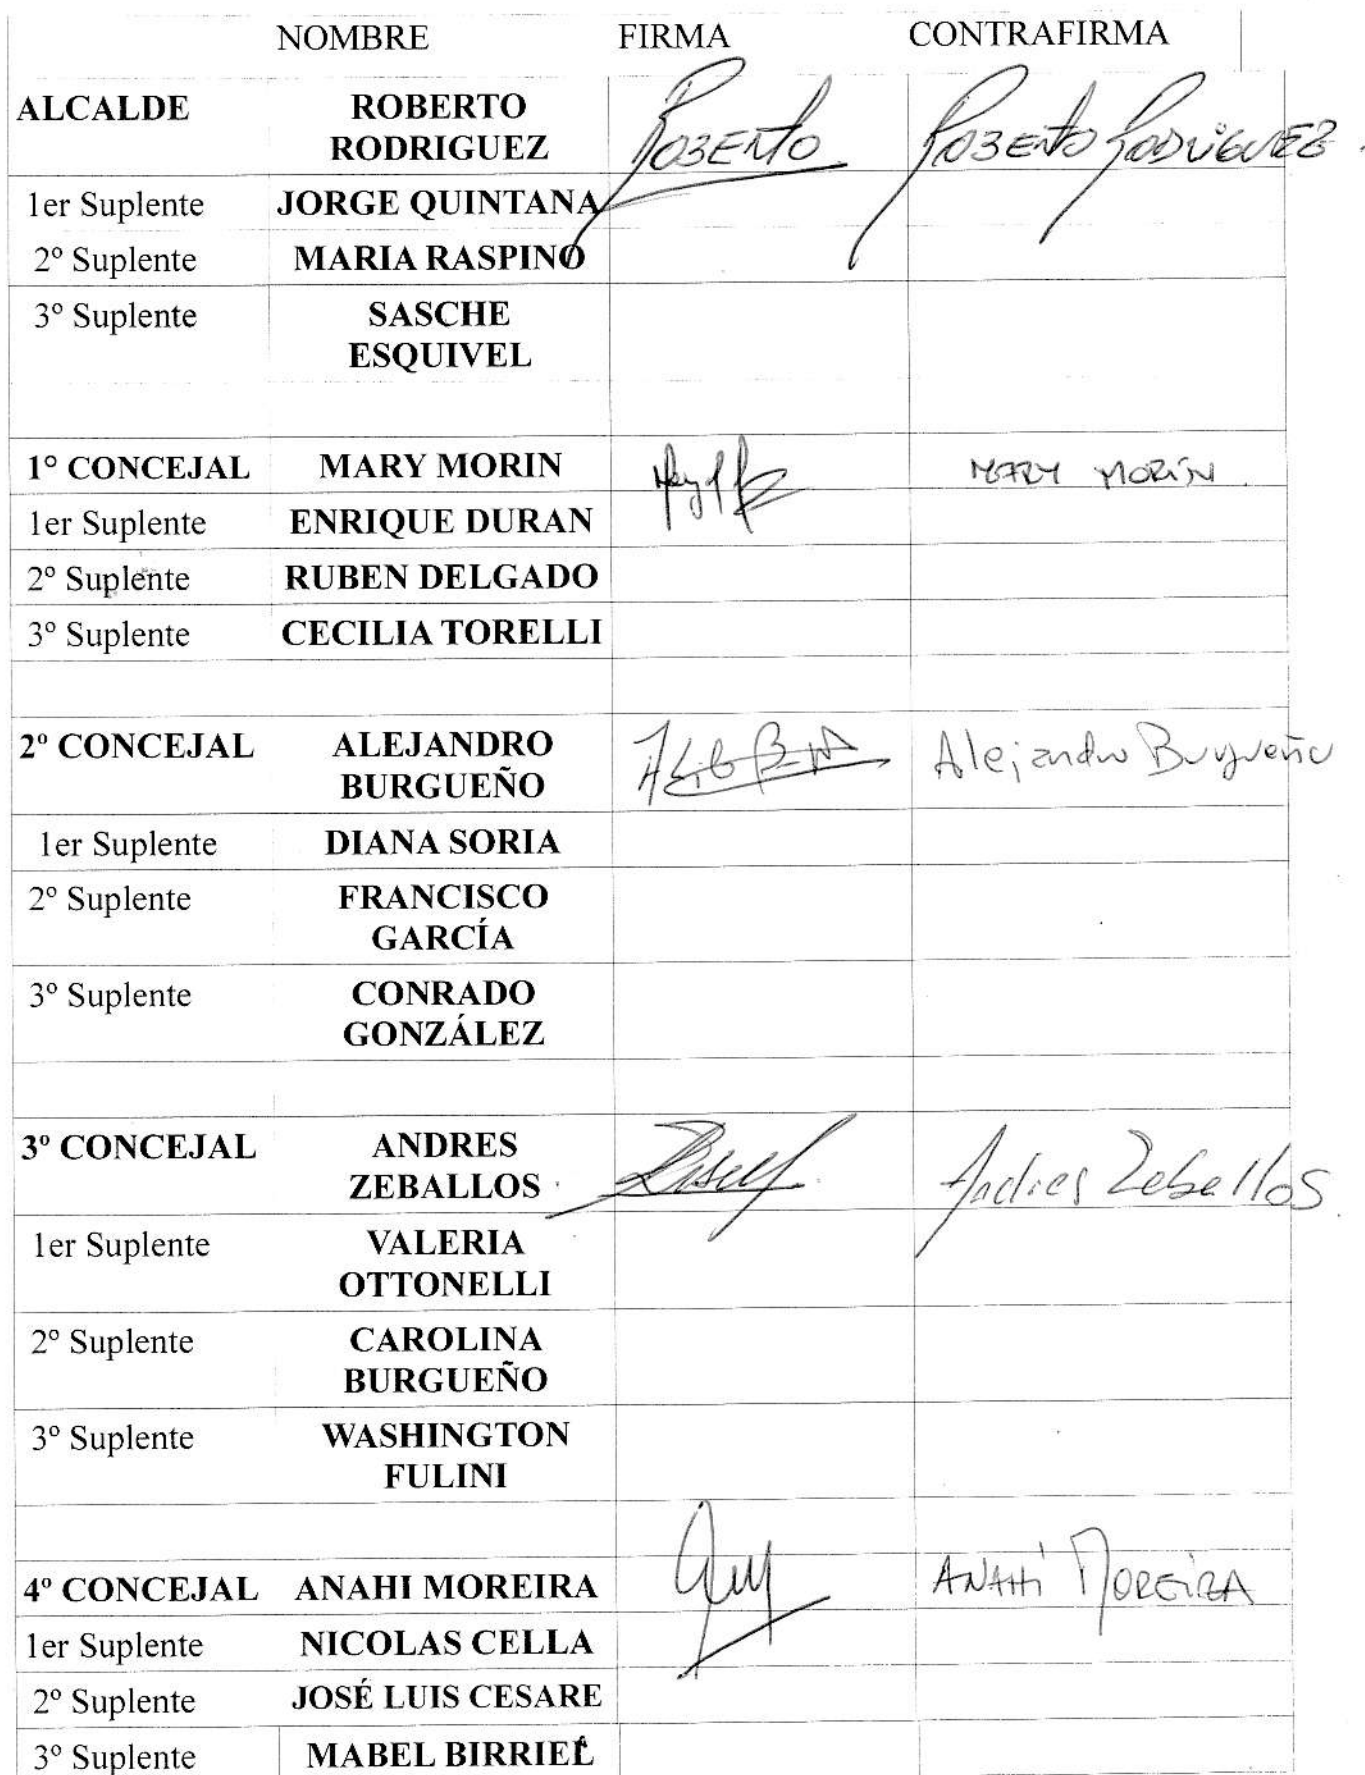 NOMBRE FIRMA CONTRAFIRMA
ALCALDE ROBERTO RODRIGUEZ ROBERTO ROBERTO RODRIGUEZ
1er Suplente JORGE QUINTANA
2º Suplente MARIA RASPINO
3º Suplente SASCHE ESQUIVEL
1º CONCEJAL MARY MORIN MARY MORÍN
1er Suplente ENRIQUE DURAN
2º Suplente RUBEN DELGADO
3º Suplente CECILIA TORELLI
2º CONCEJAL ALEJANDRO BURGUEÑO Alejandro Burgueño
1er Suplente DIANA SORIA
2º Suplente FRANCISCO GARCÍA
3º Suplente CONRADO GONZÁLEZ
3º CONCEJAL ANDRES ZEBALLOS Andres Zeballos
1er Suplente VALERIA OTTONELLI
2º Suplente CAROLINA BURGUEÑO
3º Suplente WASHINGTON FULINI
4º CONCEJAL ANAHI MOREIRA ANAHÍ MOREIRA
1er Suplente NICOLAS CELLA
2º Suplente JOSÉ LUIS CESARE
3º Suplente MABEL BIRRIEL